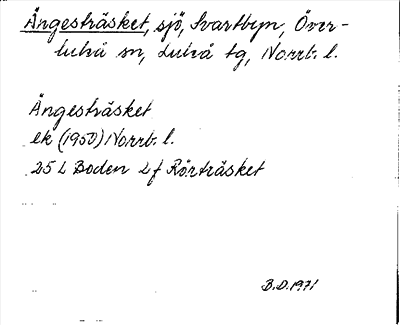 Ängesträsket, sjö, Svartbyn, Över-
luleå sn, Luleå tg, Norrb. l.
Ängesträsket
ek (1950) Norrb. l.
25 L Boden 2 f Rörträsket
B.D. 1971